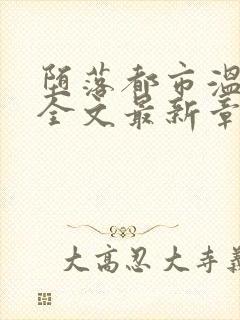 堕落都市温
全文最新章
大高忍大寺